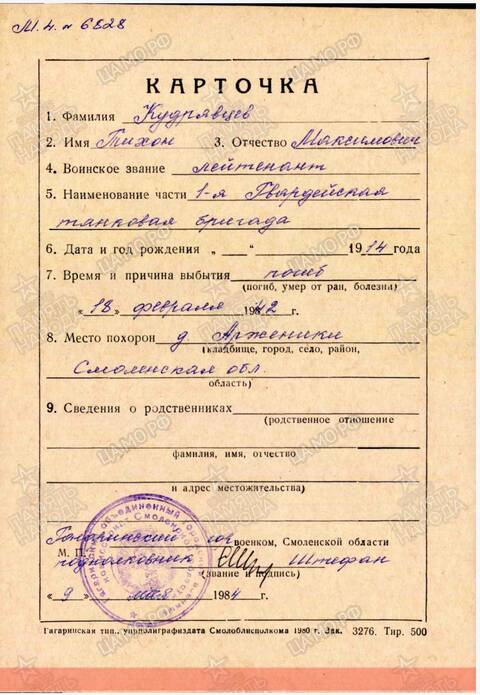 М.Н. № 6828
КАРТОЧКА
1. Фамилия Кудрявцев
2. Имя Тихон 3. Отчество Максимович
4. Воинское звание лейтенант
5. Наименование части 1-я Гвардейская
танковая бригада
6. Дата и год рождения „ “ 1914 года
7. Время и причина выбытия погиб
(погиб, умер от ран, болезни)
„18“ февраля 1942 г.
8. Место похорон д. Арженики
(кладбище, город, село, район,
Смоленская обл.
область)
9. Сведения о родственниках
(родственное отношение
фамилия, имя, отчество
и адрес местожительства)
Гагаринский военком, Смоленской области
М. П. подполковник Штефан
(звание и подпись)
„9“ мая 1984 г.
Гагаринская тип., упрполиграфиздата Смолоблисполкома 1980 г. Зак. 3276. Тир. 500